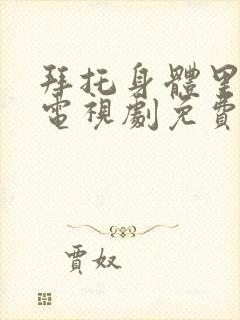 拜托身體里
電視劇免費
賈奴